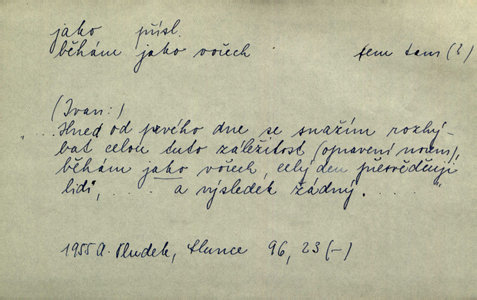 jako přísl.
běhám jako vořech tem tam (?)
(Ivan:)
...Hned od prvého dne se snažím rozhý-
bat celou tuto záležitost (opravení norem),
běhám jako vořech, celý den přesvědčuji
lidi, .... a výsledek žádný....."
1955 A. Pludek, Slunce 96, 23 (–)